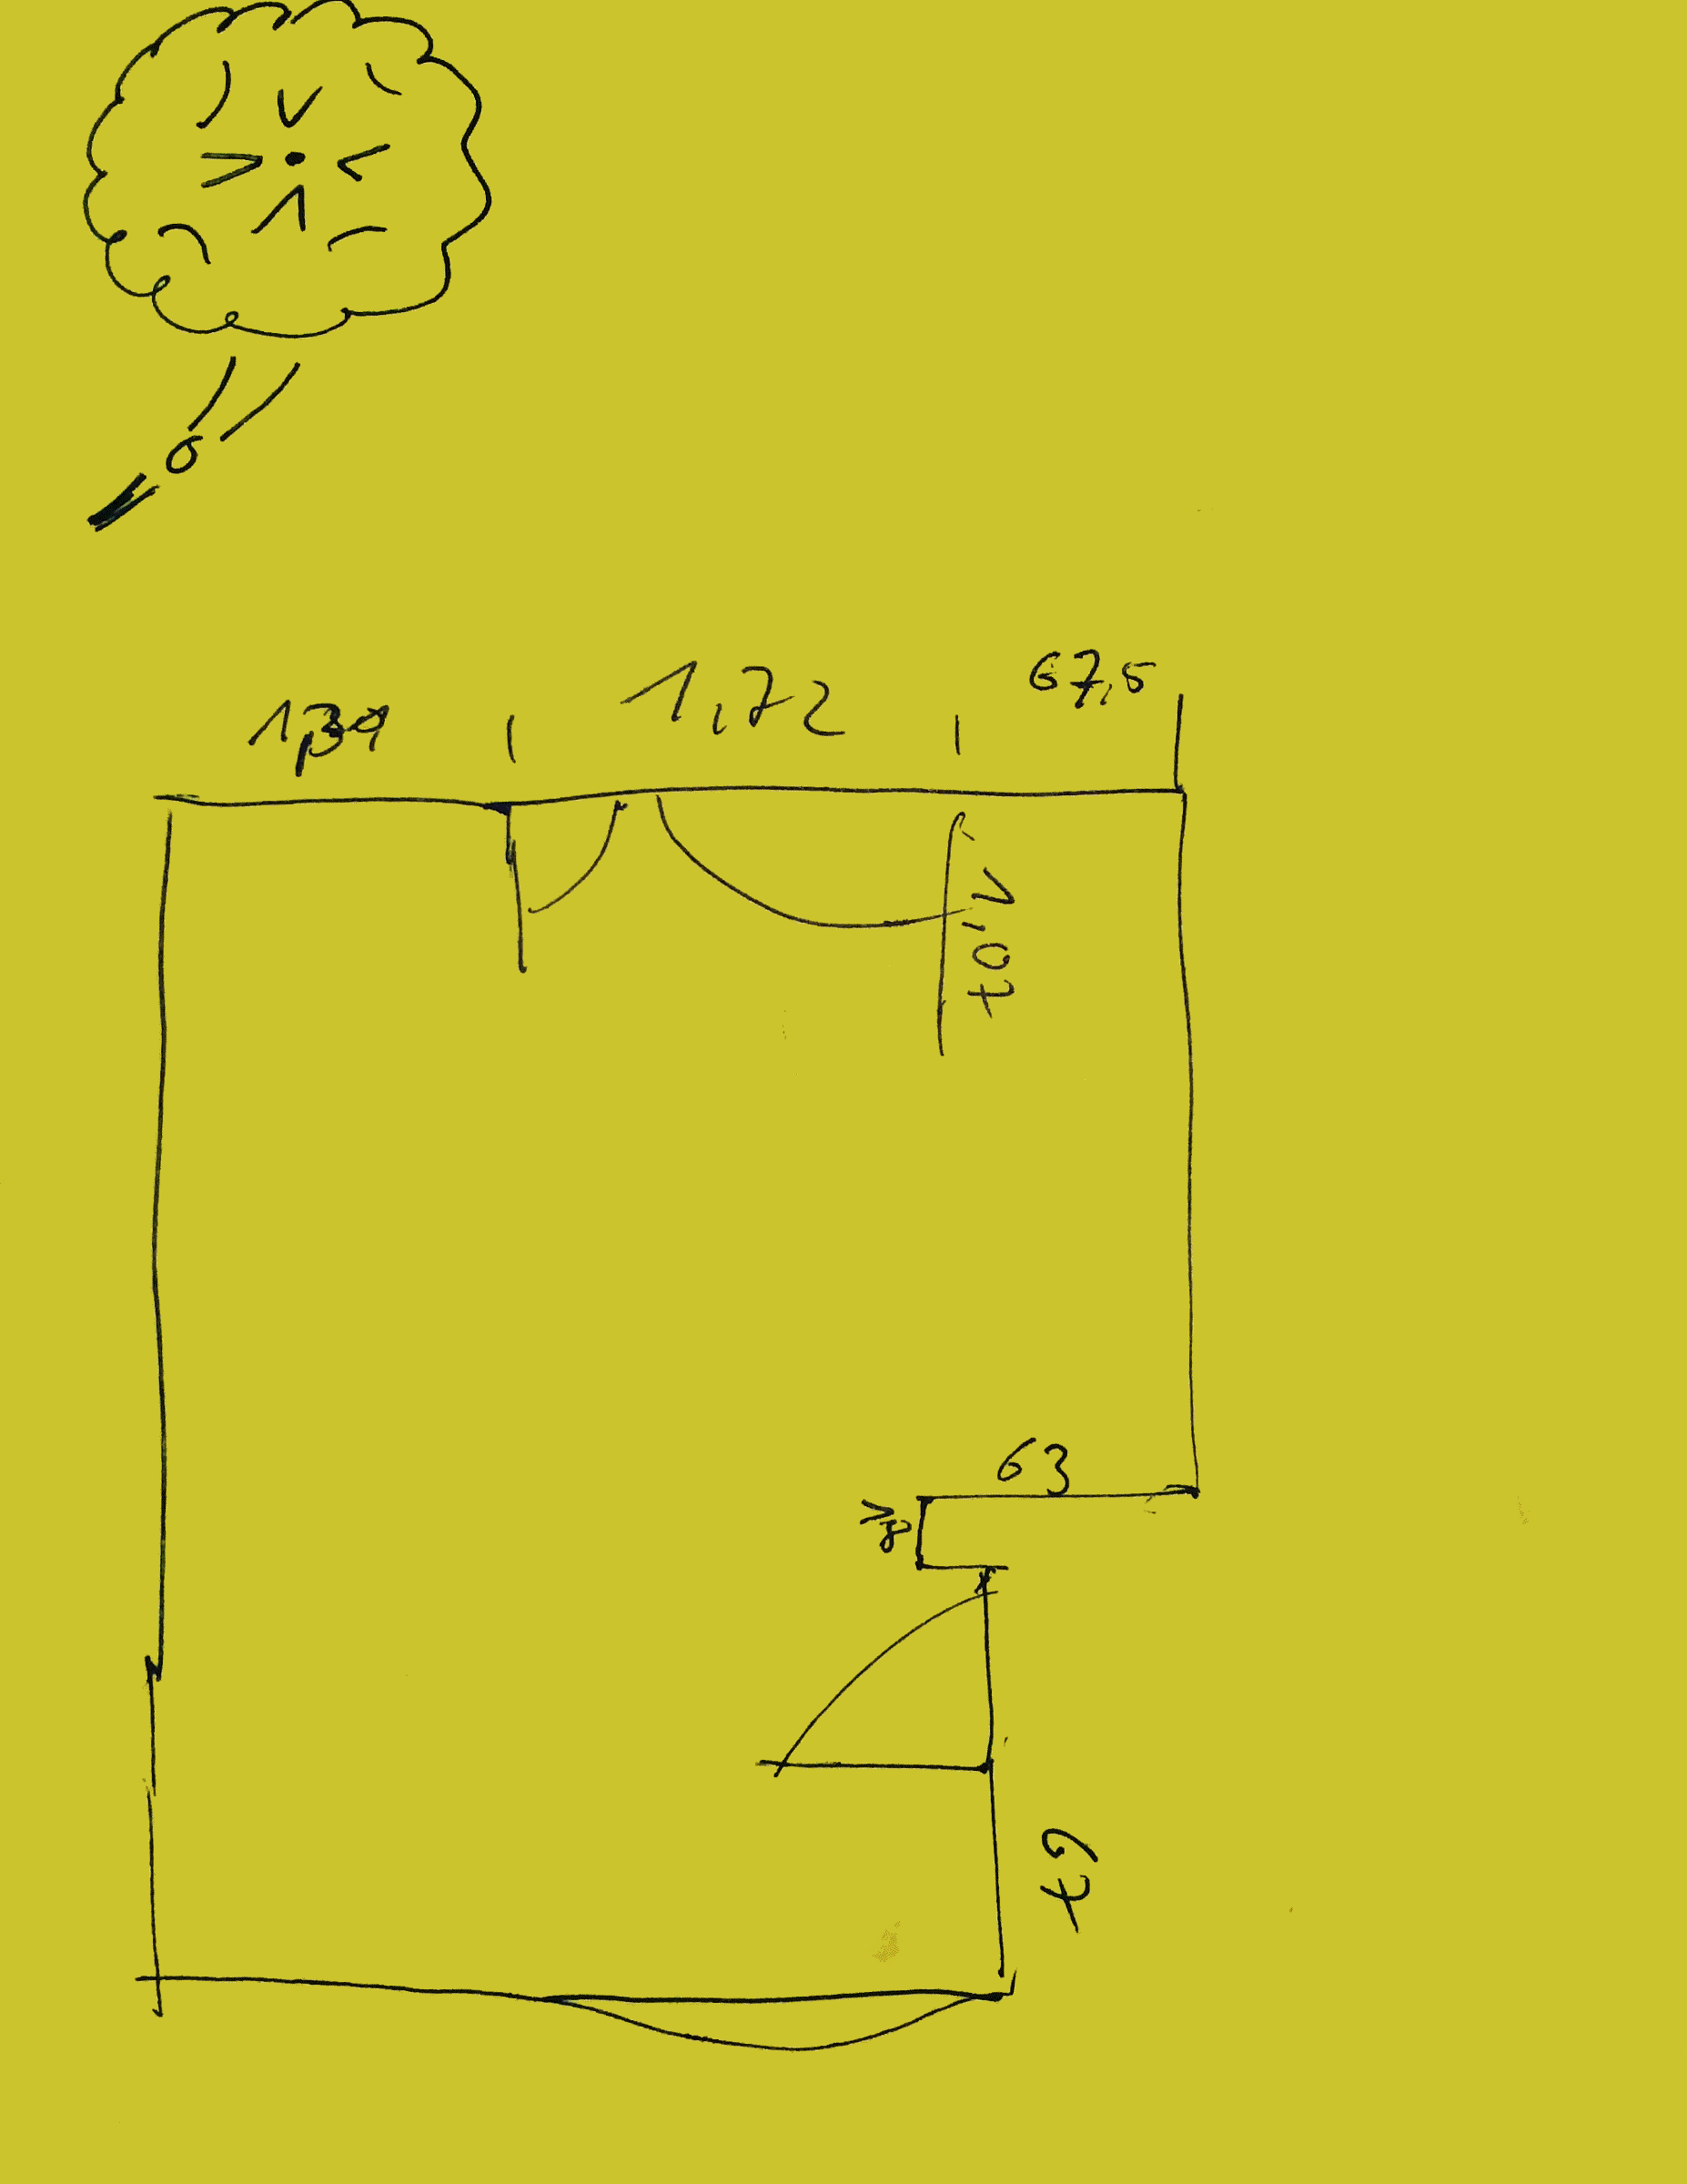 1,39
1,72
67,5
1,07
63
18
67